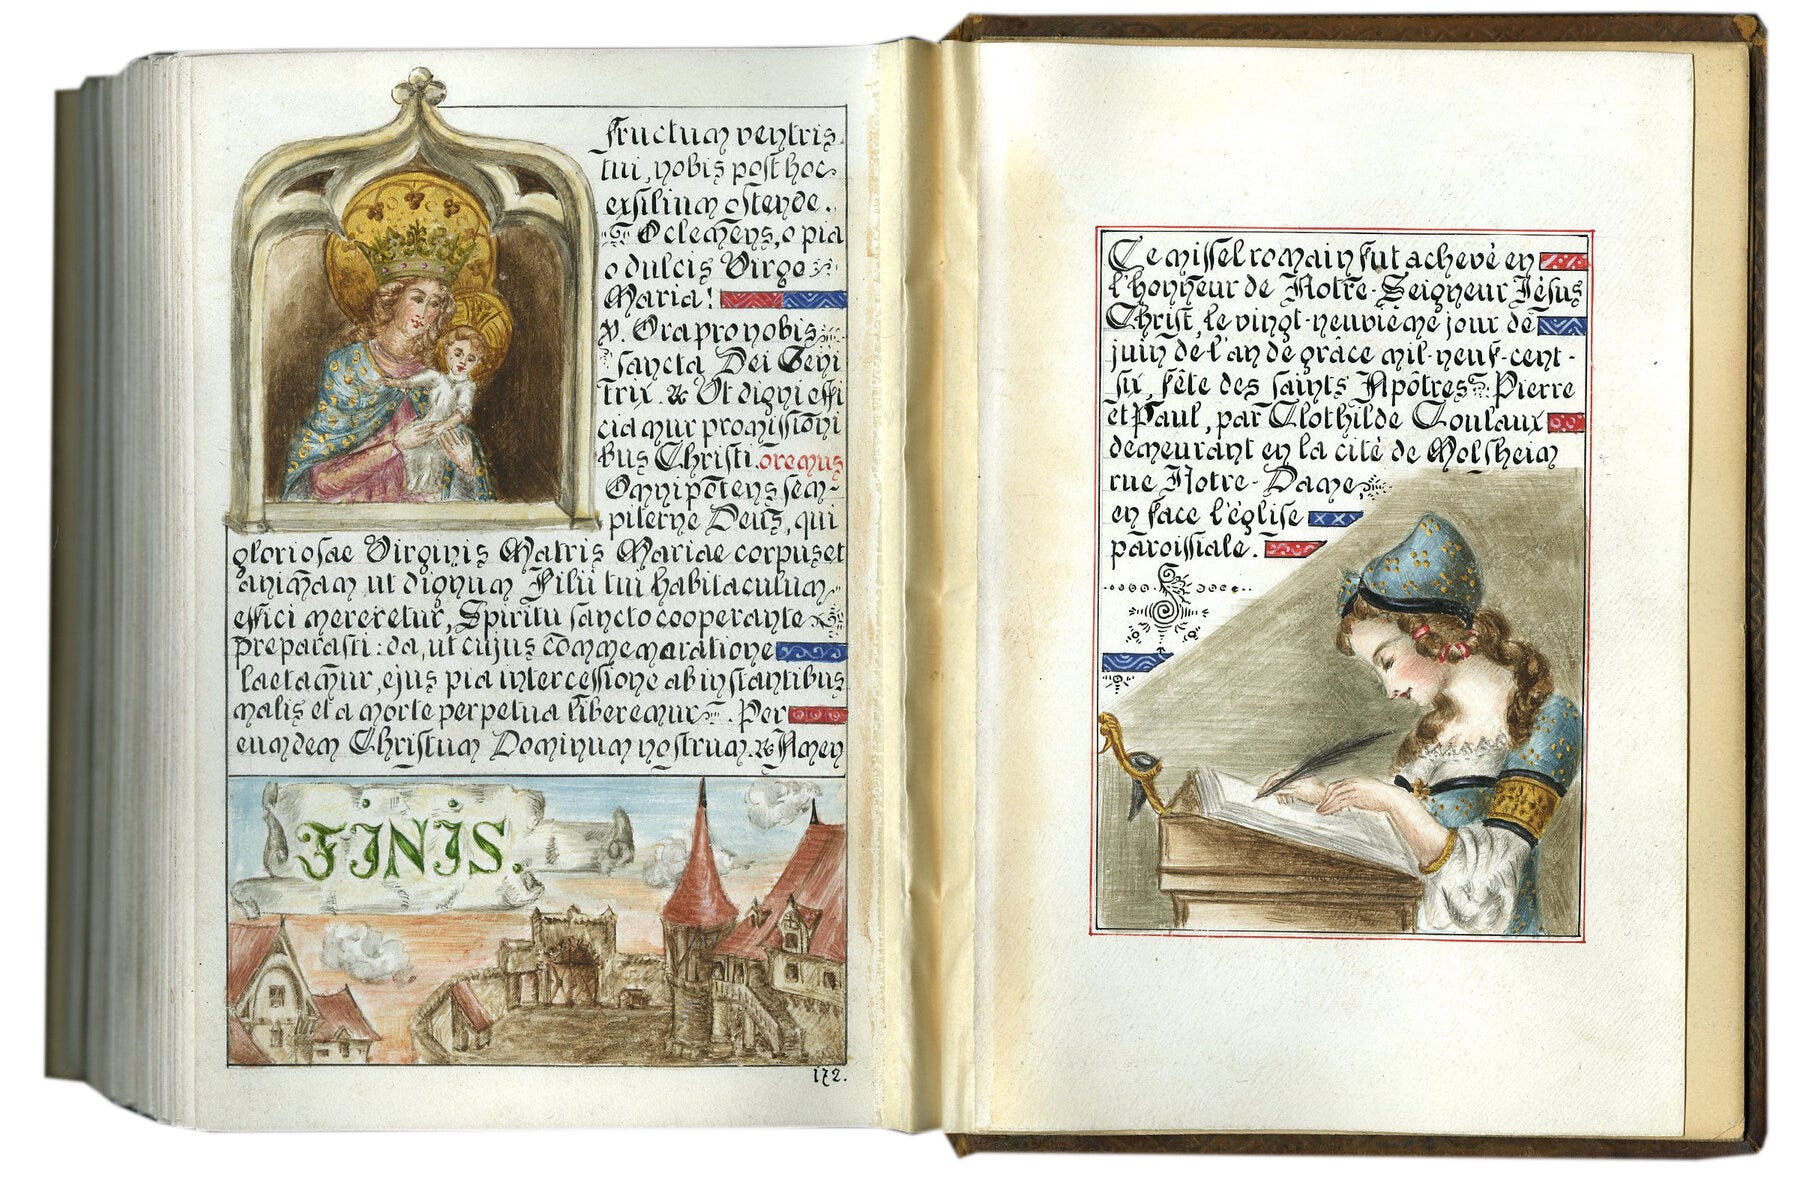 fructum ventris
tui, nobis post hoc
exsilium ostende.
O clemens, o pia
o dulcis Virgo
Maria!
V. Ora pro nobis
sancta Dei Geni
trix. R Ut digni effi
ciamur promissioni
bus Christi. oremus
Omnipotens sem-
piterne Deus, qui
gloriosae Virginis Matris Mariae corpus et
animam ut dignum Filii tui habitaculum
effici mereretur, Spiritu sancto cooperante
preparasti: da, ut cujus commemoratione
laetamur, ejus pia intercessione ab instantibus
malis et a morte perpetua liberemur. Per
eumdem Christum Dominum nostrum. R Amen
FINIS.
172.
Ce missel romain fut achevè en
l'honneur de Notre-Seigneur Jèsus
Christ, le vingt-neuvième jour de
juin de l'an de grâce mil-neuf-cent-
six, fête des saints Apôtres Pierre
et Paul, par Clothilde Coulaux
demeurant en la citè de Molsheim
rue Notre-Dame,
en face l'èglise
paroissiale.